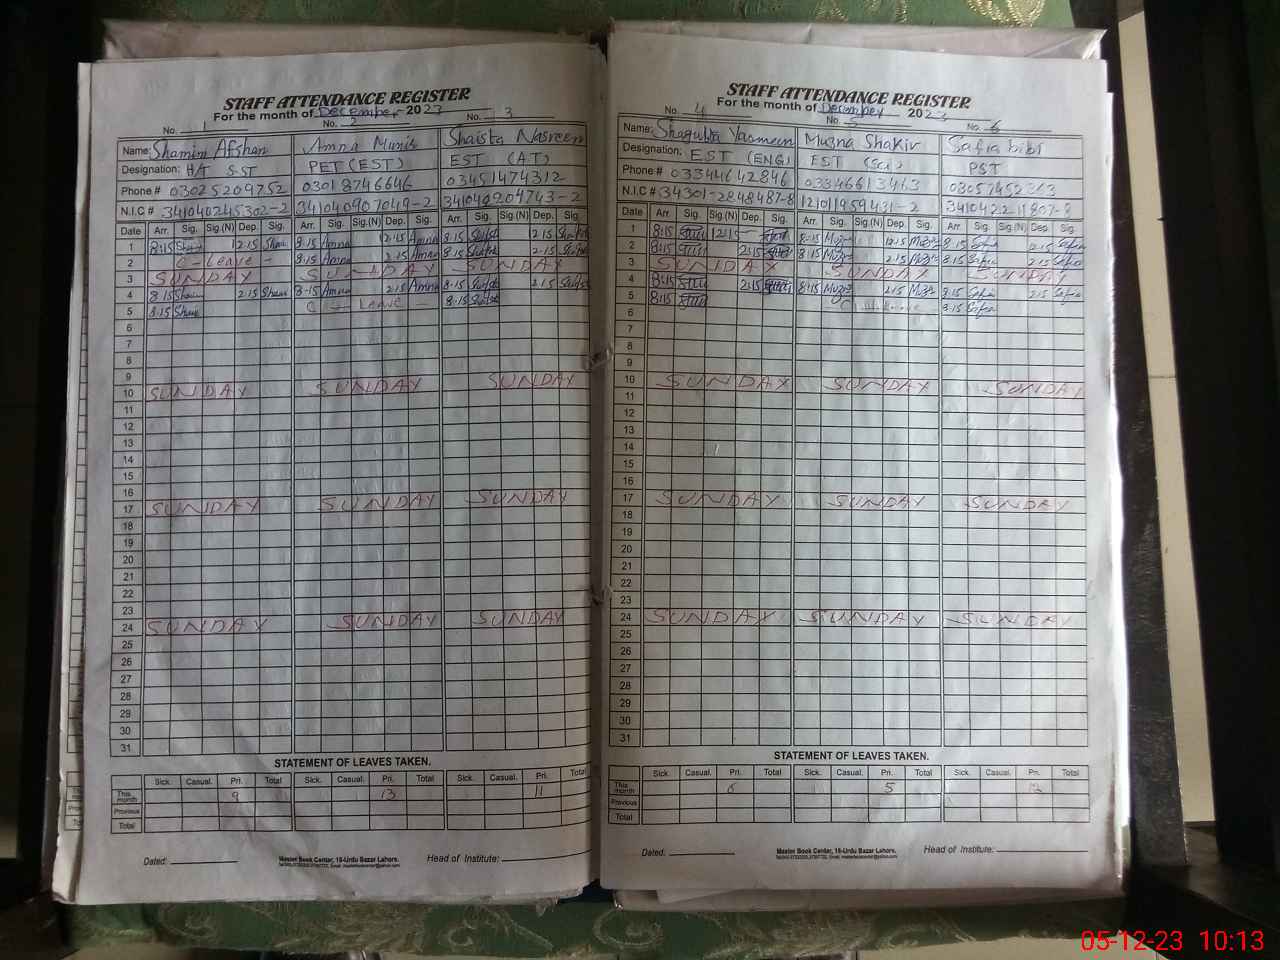 STAFF ATTENDANCE REGISTER
For the month of December 2023
No. 1 No. 2 No. 3
Name: Shamim Afshan Amna Munir Shaista Nasreen
Designation: H/T SST PET (EST) EST (A.T)
Phone # 03025209752 03018746646 03451474312
N.I.C # 341040245302-2 3410409070419-2
Date Arr. Sig. Sig.(N) Dep. Sig. Arr. Sig. Sig.(N) Dep. Sig. Arr. Sig. Sig.(N) Dep. Sig.
1 8:15 12:15 8:15 Amna 12:15 Amna 8:15 12:15
2 C - Leave - 8:15 Amna 2:15 Amna 8:15 2:15
3 SUNDAY SUNDAY SUNDAY
4 8:15 2:15 8:15 Amna 2:15 Amna 8:15 2:15
5 8:15 C - Leave 8:15
6
7
8
9
10 SUNDAY SUNDAY SUNDAY
11
12
13
14
15
16
17 SUNDAY SUNDAY SUNDAY
18
19
20
21
22
23
24 SUNDAY SUNDAY SUNDAY
25
26
27
28
29
30
31
STATEMENT OF LEAVES TAKEN.
Sick. Casual. Pri. Total Sick. Casual. Pri. Total Sick. Casual. Pri. Total
This month 9 13 11
Previous
Total
Dated: Master Book Center, 16-Urdu Bazar Lahore. Head of Institute:
STAFF ATTENDANCE REGISTER
For the month of December 2023
No. 4 No. 5 No. 6
Name: Shagufta Yasmeen Muzna Shakir Safia bibi
Designation: EST (ENG) EST (Sci) PST
Phone # 03344642846 03346613463
N.I.C # 34301-2848487-8 121011959431-2
Date Arr. Sig. Sig.(N) Dep. Sig. Arr. Sig. Sig.(N) Dep. Sig. Arr. Sig. Sig.(N) Dep. Sig.
1 8:15 12:15 8:15 12:15 8:15 2:15
2 8:15 2:15 8:15 2:15 8:15 2:15
3 SUNDAY SUNDAY SUNDAY
4 8:15 2:15 8:15 2:15 8:15 2:15
5 8:15 8:15
6
7
8
9
10 SUNDAY SUNDAY SUNDAY
11
12
13
14
15
16
17 SUNDAY SUNDAY SUNDAY
18
19
20
21
22
23
24 SUNDAY SUNDAY SUNDAY
25
26
27
28
29
30
31
STATEMENT OF LEAVES TAKEN.
Sick. Casual. Pri. Total Sick. Casual. Pri. Total Sick. Casual. Pri. Total
This month 6 5 12
Previous
Total
Dated: Master Book Center, 16-Urdu Bazar Lahore. Head of Institute:
05-12-23 10:13